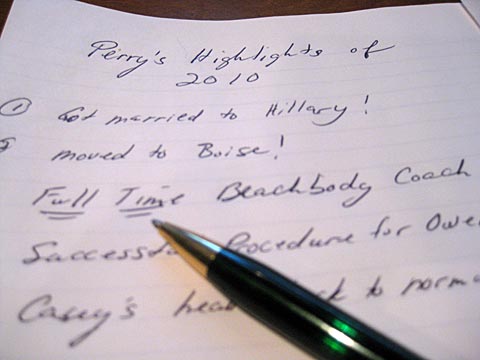 Perry's Highlights of
2010
① Got married to Hillary!
moved to Boise!
Full Time Beachbody Coach
Procedure for
Casey's to